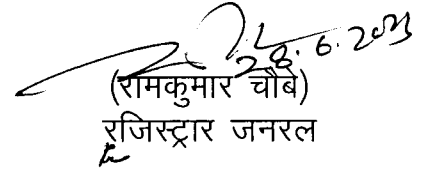 28.6.2023
(रामकुमार चौबे)
रजिस्ट्रार जनरल